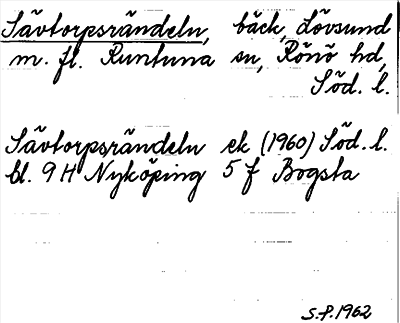 Sävtorpsrändeln, bäck, Lövsund
m. fl. Runtuna sn, Rönö hd,
Söd. l.
Sävtorpsrändeln ek (1960) Söd. l.
bl. 9 H Nyköping 5 f Bogsta
S.P. 1962